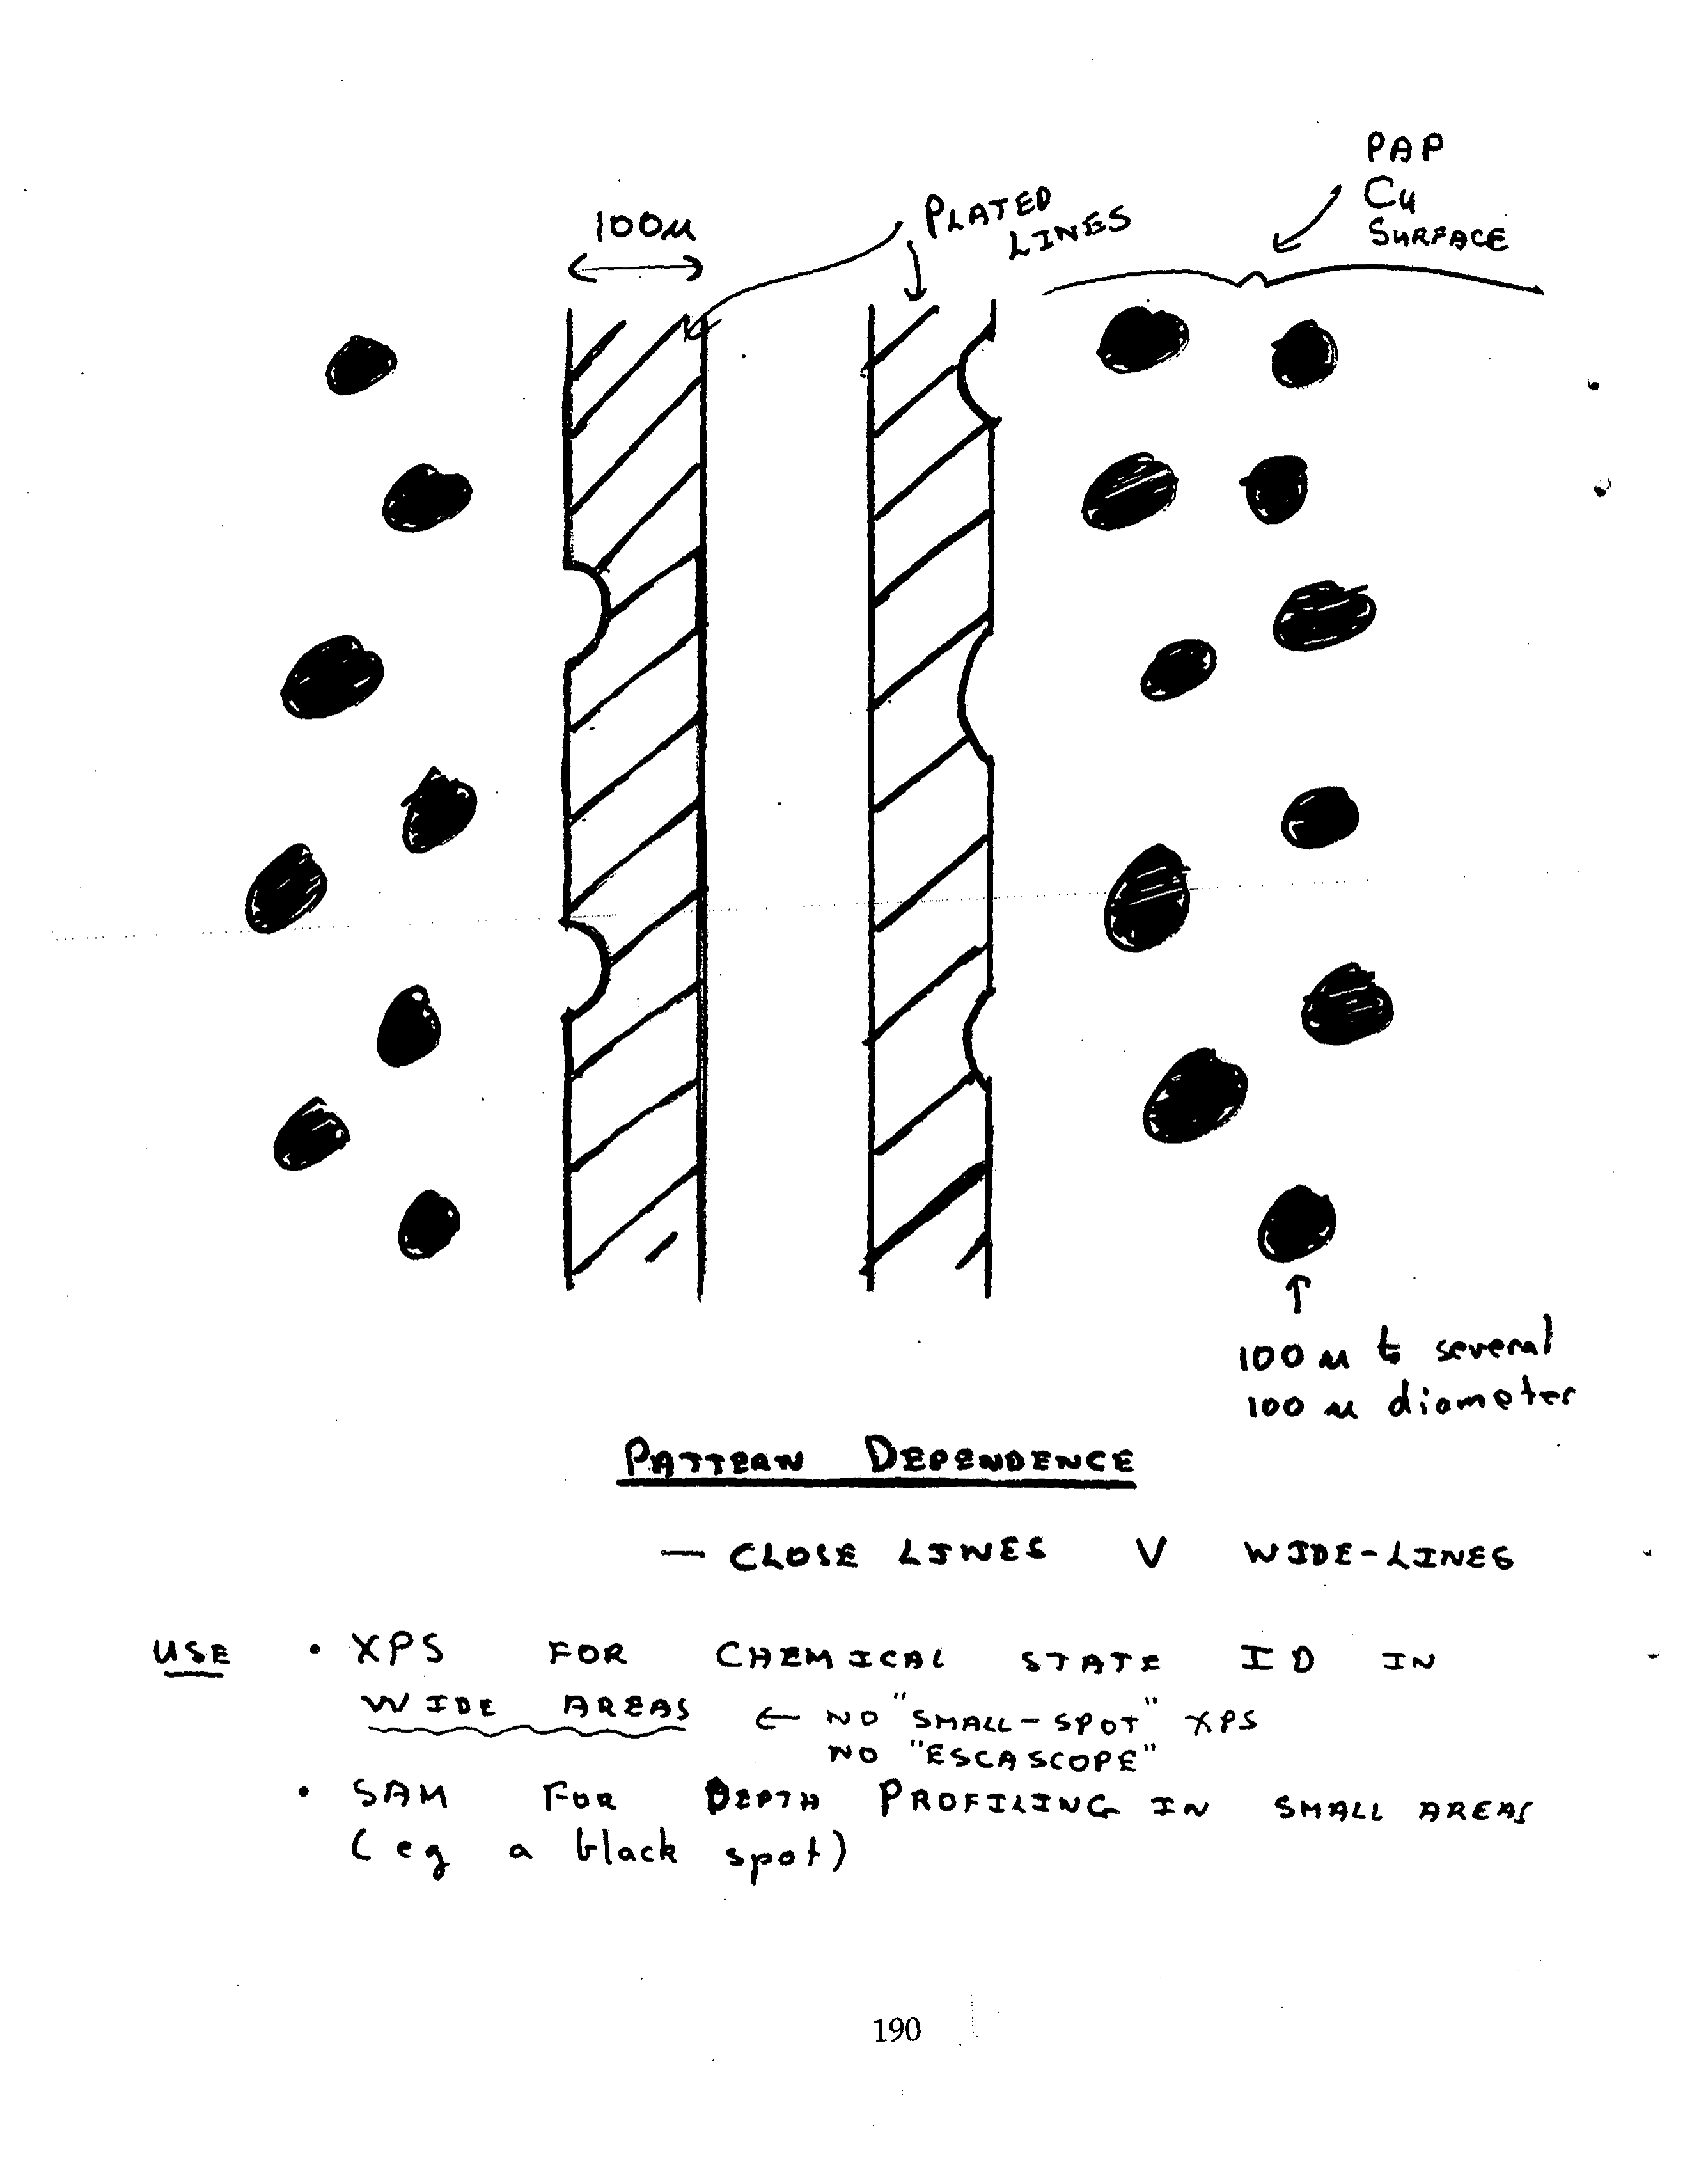 PAP
Cu
SURFACE
100µ
PLATED
LINES
100 µ to several
100 µ diameter
PATTERN DEPENDENCE
— CLOSE LINES V WIDE-LINES
USE • XPS FOR CHEMICAL STATE ID IN
WIDE AREAS ← NO "SMALL-SPOT" XPS
NO "ESCASCOPE"
• SAM FOR DEPTH PROFILING IN SMALL AREAS
(eg a black spot)
190